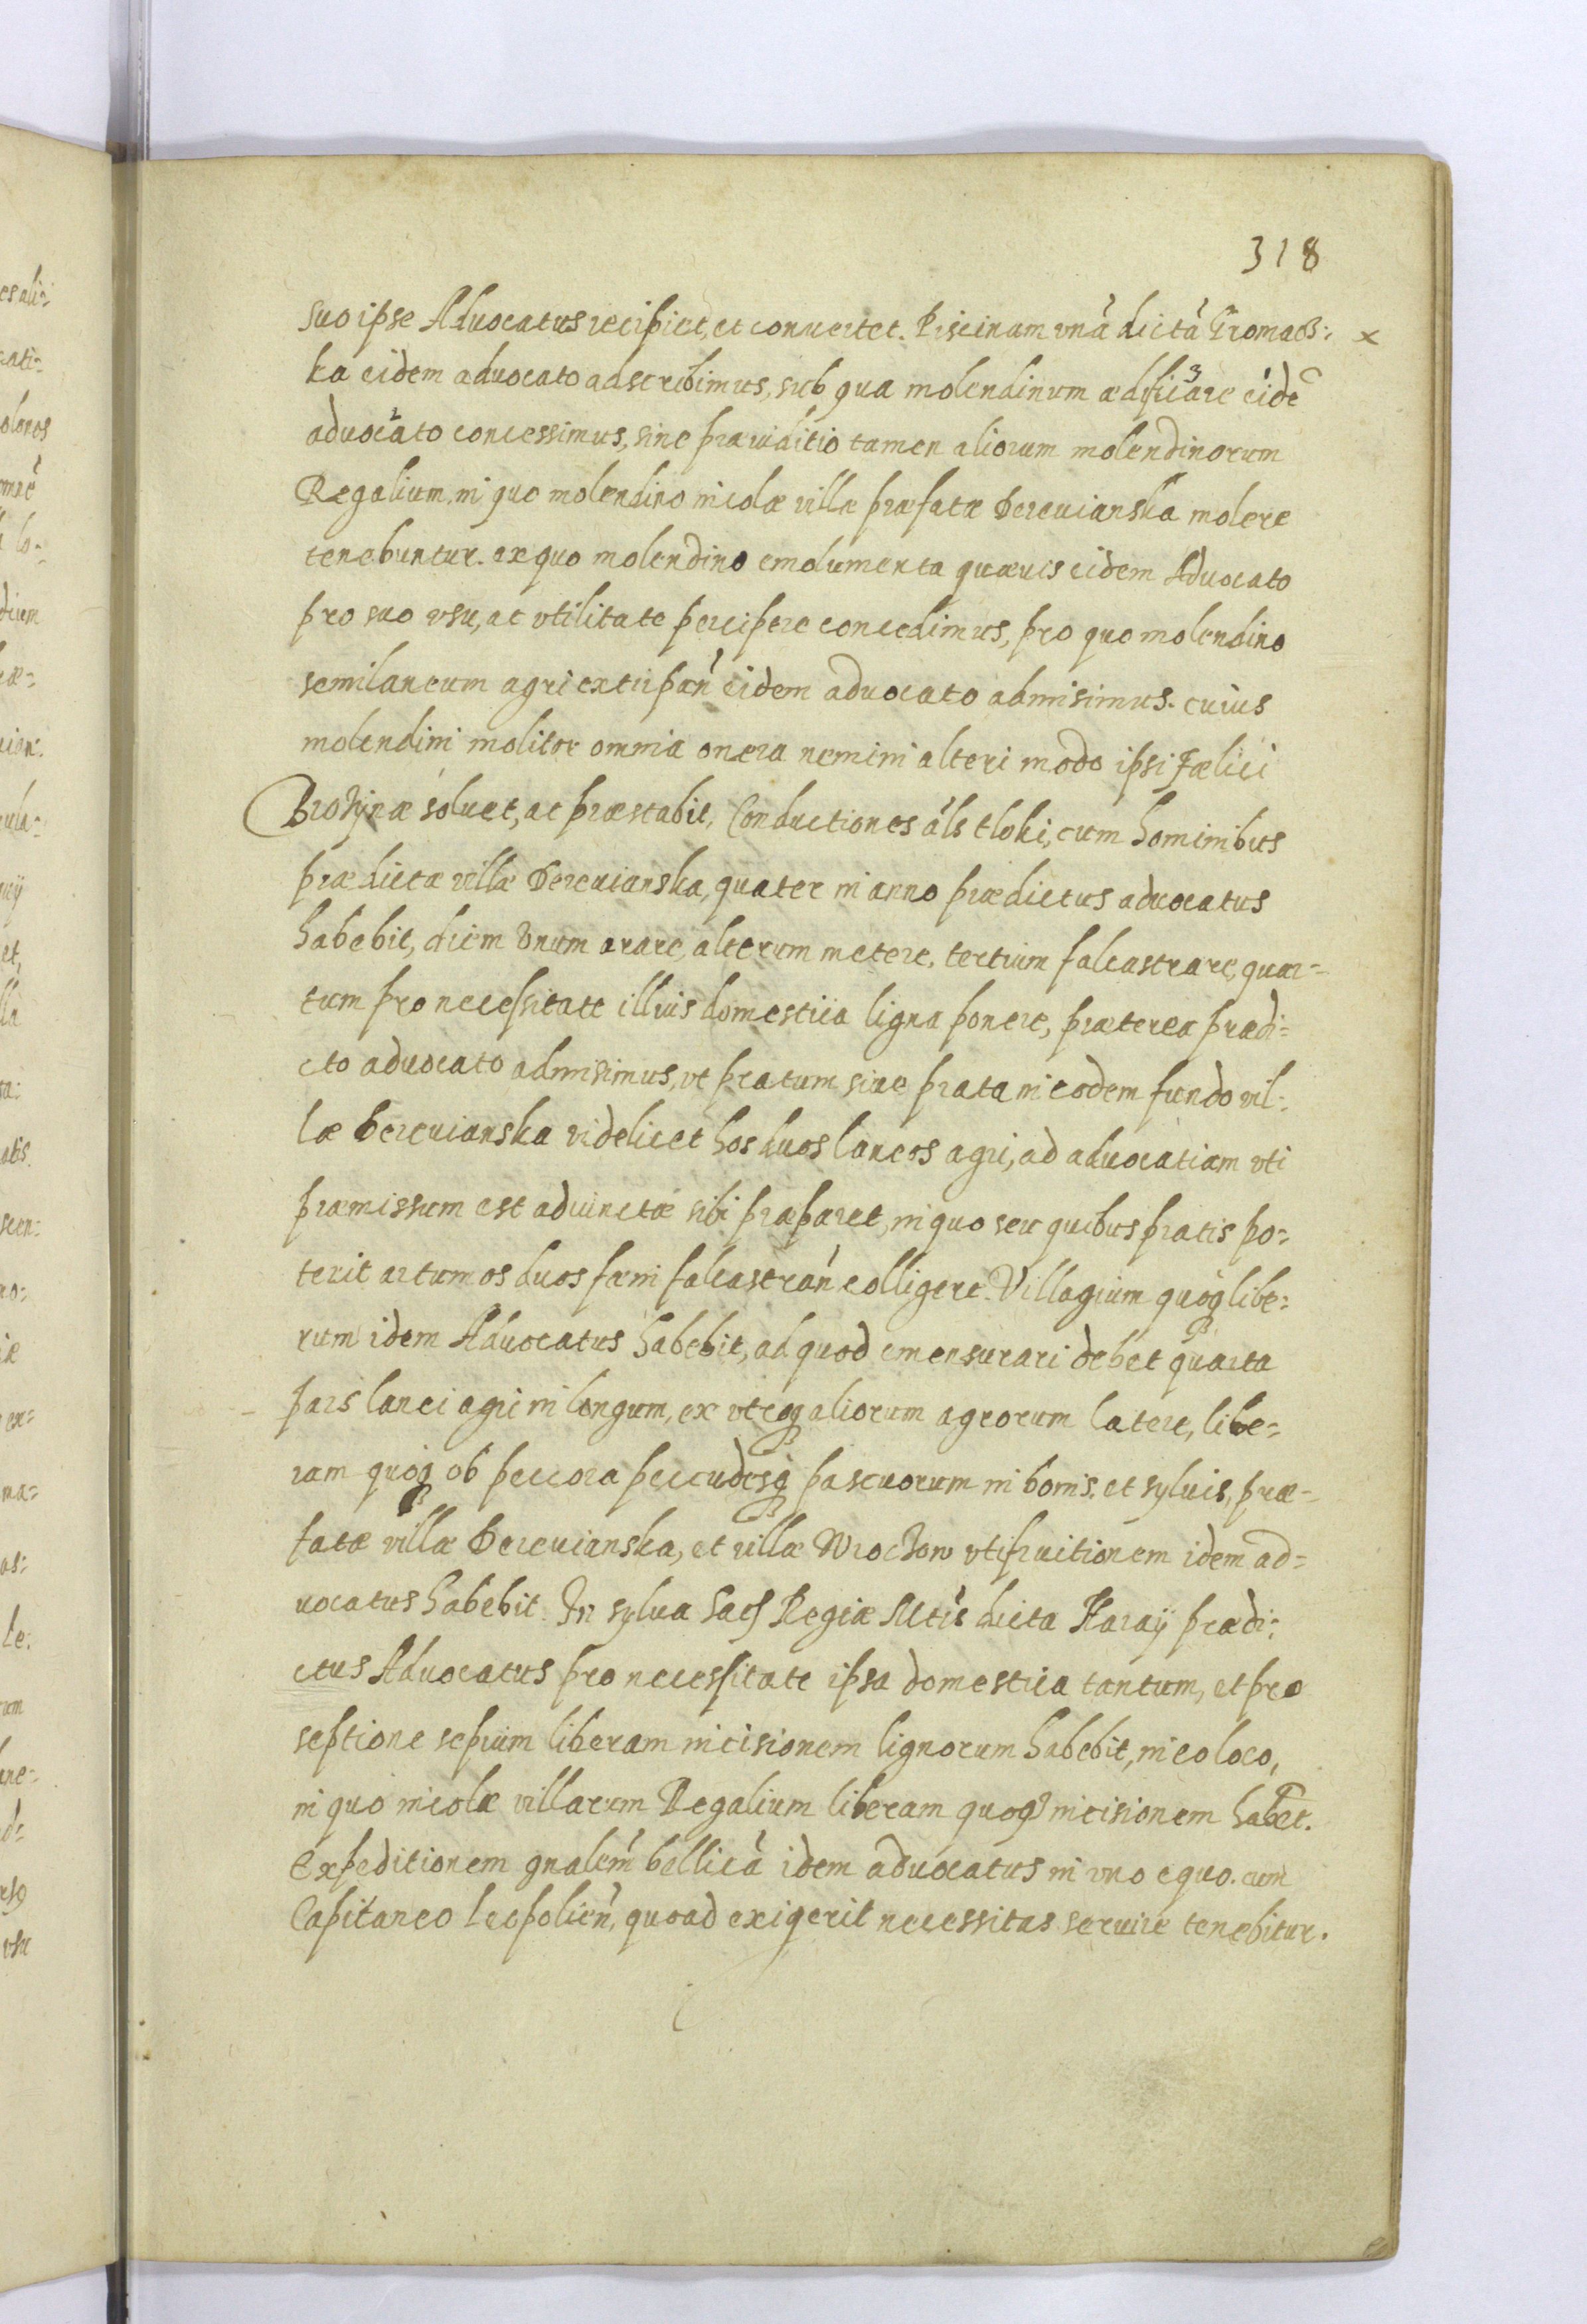 318
suo ipse Advocatus recipiet, et convertet. Piscinam unà dictà Gromacz: x
ka eidem advocato adscribimus, sub qua molendinum ædificare eidē
advocato concessimus, sine præiuditio tamen aliorum molendinorum
Regalium, in quo molendino incolæ villæ præfatæ Derevianska molere
tenebuntur. ex quo molendino emolumenta quævis eidem Advocato
pro suo usu, ac utilitate percipere concedimus, pro quo molendino
semilaneum agri extirpan̄ eidem advocato admisimus. cuius
molendini molitor omnia onera nemini alteri modo ipsi Fælici
solvet, ac præstabit, Conductiones als tloki, cum hominibus
prædictæ villæ Derevianska, quater in anno prædictus advocatus
habebit, diem vnum arare, alterum metere, tertium falcastrare, quar=
tum pro necessitate illius domestica ligna ponere, præterea prædi=
cto advocato admisimus, vt pratum sive prata in eodem fundo vil:
læ Derevianska videlicet hos duos laneos agri, ad advocatiam vti
præmissum est adiunctæ sibi præparet, in quo seu quibus pratis po=
terit acumos duos fæni falcastran̄ colligere. Villagium quoq libe=
rum idem Advocatus habebit, ad quod emensurari debet quarta
pars lanei agri in longum, ex utroq aliorum agrorum latere, libe=
ram quoq ob peccora peccudesq pascuorum in bonis. et sylvis, præ=
fatæ villæ Derevianska, et villæ Wrochow vtifruitionem idem ad=
vocatus habebit. In sylva Sacſ Regiæ Mtis dicta Haraij prædi:
ctus Advocatus pro necessitate ipsa domestica tantum, et pro
septione sepium liberam incisionem lignorum habebit, in eo loco,
in quo incolæ villarum Regalium liberam quoq incisionem habēt.
Expeditionem gnalem bellicà idem advocatus in uno equo. cum
Capitaneo Leopolien̄, quoad exigerit necessitas servire tenebitur.